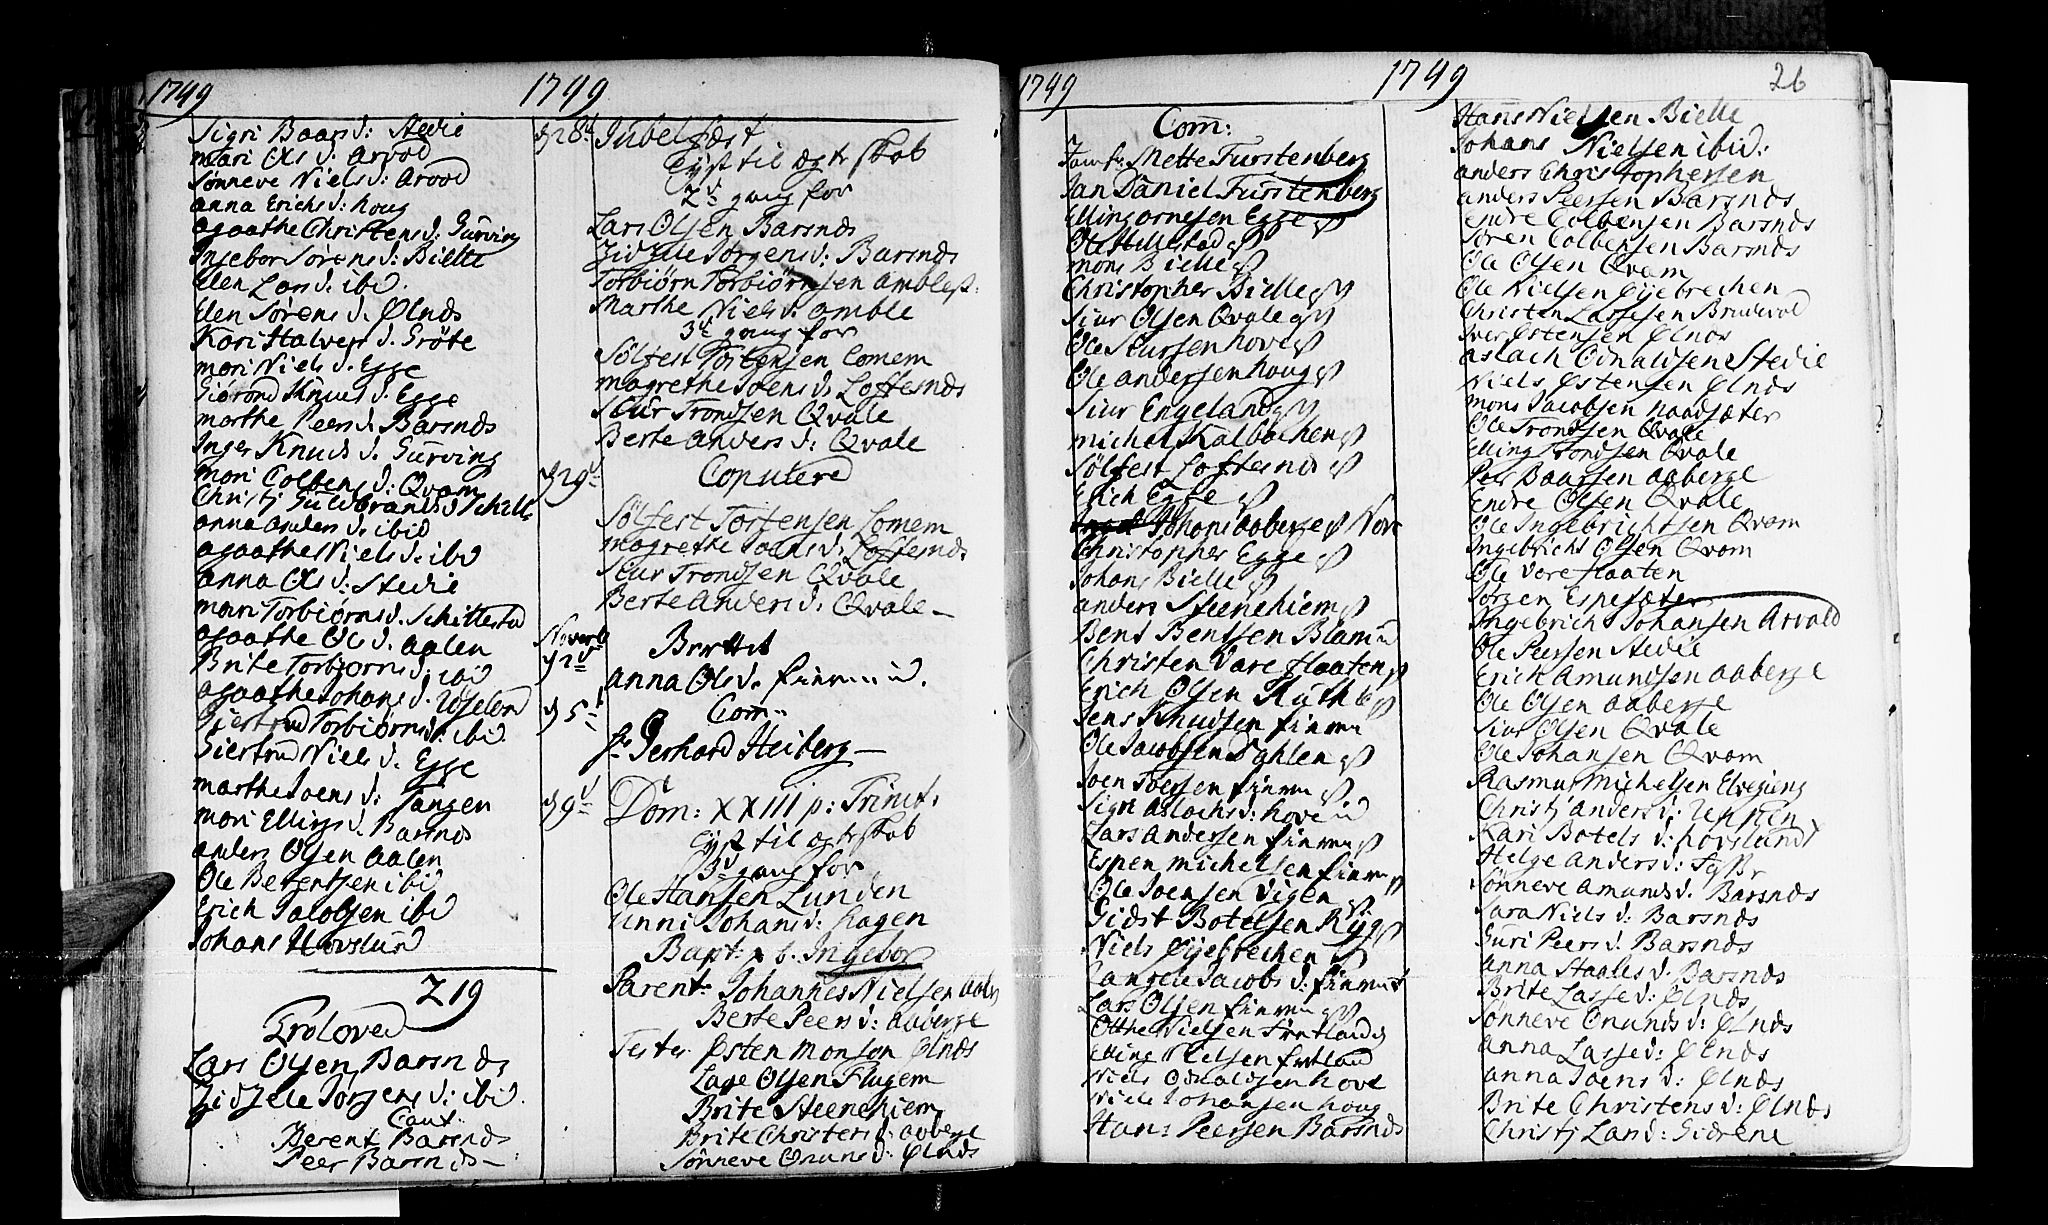 1749
1749
Sigri Baars d: Stedie
Mari Ols d: Arvod
Sønneve Niels d: Arvod
Anna Erichs d: Houg
Agaathe Christens d. Gurving
Ingebor Sørens d: Bielle
Elen Lars d: ibid.
Elen Sørens d. Ølnds
Kari Halvers d. Grøte
Mari Niels d. Egge
Giørond Knuds d. Egge
Marthe Peers d. Barsnds
Inger Knuds d. Gurving
Mari Colbens d: Qvam
Christj Guldbrands d
Anna Anders d: ibid
Agaathe Niels d: ibd
Anna Ols d: Stedie
Mari Torbiørns d. Schillestad
Agaathe Ols d. Aalen
Brite Torbjorns d: ibid
Agaathe Johans d.
Giertrud Torbiørns d: ibid.
Giertrud Niels d. Egge
Marthe Joens d: Tangen
Mari Ellings d. Barsnds
Anders Olsen Aalen
Ole Berentsen ibid
Erich Jacobsen ibd
Johans Hovslund
219
Troloved
Lars Olsen Barsnds
Zidzele Jørgens d: ibid.
Caut:
Berent Barsnds
Peer Barsnds
d 28d Jubelfæst
Lyst til ægteskab
2d gang for
Lars Olsen Barsnds
Zidzele Jørgens d: Barsnds
Torbiørn Torbiørnsen Ambleß:
Marthe Niels d: Amble
3d gang for
Sølfest Torsensen Lomem
Magrethe Joens d. Loftesnds
Siur Trondsen Qvale
Berte Anders d: Qvale
d 29d Coputered
Sølfest Torsensen Lomem
Magrethe Joens d. Loftesnds
Siur Trondsen Qvale
Berte Anders d. Qvale
Novemb
d 2d
Anna Ols d.
d 5d Com:
Hr Gerhard Heiberg
d 9d Dom: XXIII p: Trinit:
Lyst til ægteskab
3d gang for
Ole Hansen Lunden
Unni Johans d: Hagen
Bapt: p b. Ingebor
Parent: Johannes Nielsen Aab
Berte Peers d: Aaberge
Testes Østen Monsøn Ølnds
Lage Olsen Flugem
Brite Steenehiem
Brite Christens d: Aaberge
Sønneve Onuns d: Ølnds
1749
1749
26
Com:
Jomfr: Mette Furstenberg
Jan Daniel Furstenberg
Elling Ornesen Egge
Ole Hillestad
Mons Bielle
Christopher Bielle
Siur Olsen Qvale
Ole Siursen Hove
Ole Andersen Houg
Siur Engeland
Michel Kalbachen
Sølfest Loftesnds
Erich Egge
Johans Aaberge
Christopher Egge
Johans Bielle
Anders Steenehiem
Bent Bentsen
Christen Vareflaaten
Erich Olsen
Jens Knudsen
Ole Jacobsen Dahlen
Joen Joensen
Sigri Aslachs d: Hove
Lars Andersen
Espen Michelsen
Ole Joensen Vigen
Botolfsen
Niels Øyebrechen
Jacobs d:
Lars Olsen
Otthe Nielsen Fretland
Elling Nielsen Fretland
Niels Odnaldsen Hove
Niels Johansen Houg
Hans Peersen Barsnds
Hans Nielsen Bielle
Johans Nielsen ibid:
Anders Christophersen
Anders Peersen Barsnds
Endre Colbensen Barsnds
Søren Colbensen Barsnds
Ole Olsen Qvam
Ole Nielsen Øyebrechen
Christen Lassesen Bruievol
Iver Østensen Ølnds
Aslach Odnaldsen Stedie
Niels Østensen Ølnds
Mons Jacobsen Naadsæter
Ole Trondsen Qvale
Elling Trondsen Qvale
Peer Baarsen Aaberge
Endre Olsen Qvale
Ole Ingebrichtsen Qvam
Ingebricht Olsen Qvam
Ole Vareflaaten
Jørgen Espesæter
Ingebrich Johansen Arvald
Ole Peersen Stedie
Erich Amundsen Aaberge
Ole Olsen Aaberge
Siur Olsen Qvale
Ole Johansen Qvam
Rasmus Michelsen Elvegung
Christj Anders d:
Kari Botels d: Hovslund
Helge Anders d:
Sønneve Amunds d. Barsnds
Sara Niels d: Barsnds
Guri Peers d. Barsnds
Anna Staales d. Barsnds
Brite Lasse d: Ølnds
Sønneve Onunds d: Ølnds
Anna Lasse d: Ølnds
Anna Joens d: Ølnds
Brite Christens d: Ølnds
Christj Lars d: